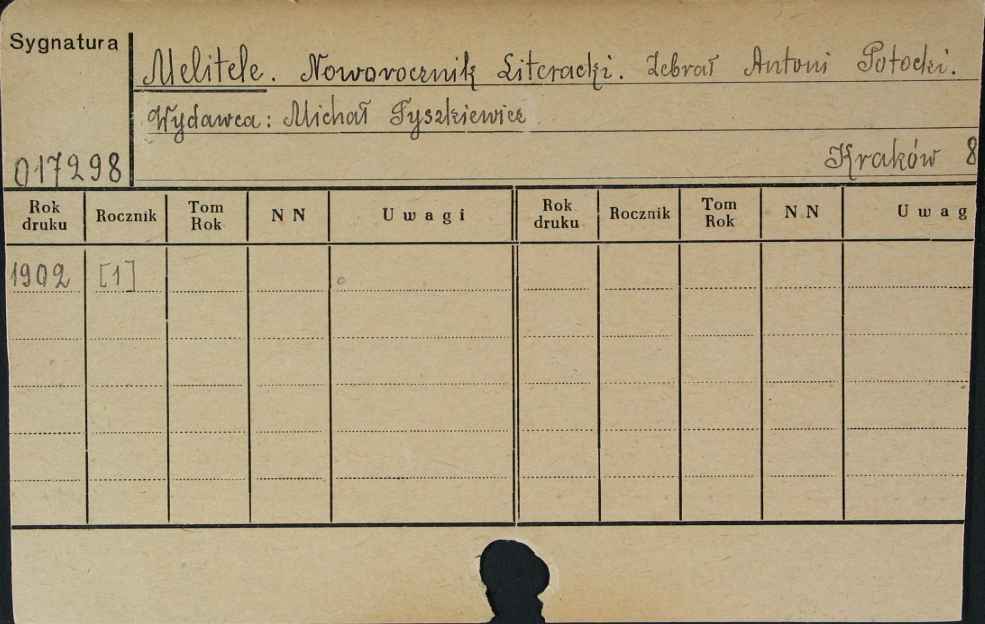 Sygnatura
Melitele. Noworocznik Literacki. Zebrał Antoni Potocki.
Wydawca: Michał Tyszkiewicz
Kraków 8
017298
Rok druku Rocznik Tom Rok NN Uwagi Rok druku Rocznik Tom Rok NN Uwag
1902 [1]